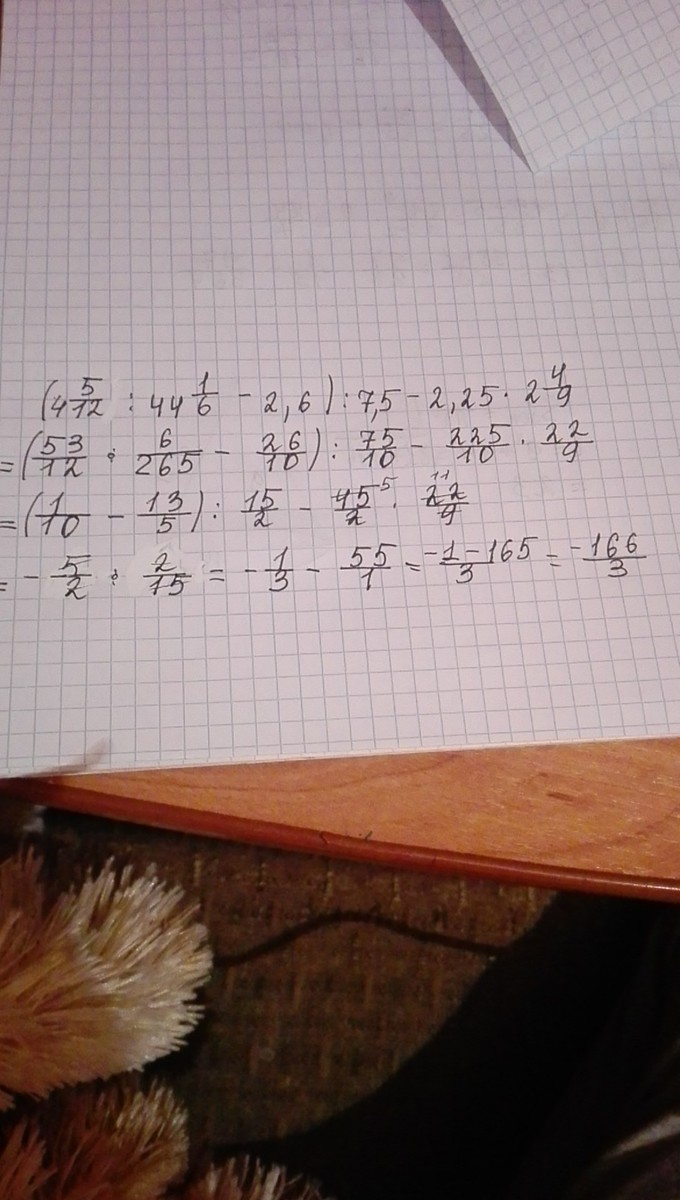 (4 5/12 : 44 1/6 - 2,6) : 7,5 - 2,25 · 2 4/9
= (53/12 · 6/265 - 26/10) : 75/10 - 225/10 · 22/9
= (1/10 - 13/5) : 15/2 - 45⁵/2 · 22¹¹/9
= - 5/2 · 2/15 = - 1/3 - 55/1 = -1-165/3 = -166/3